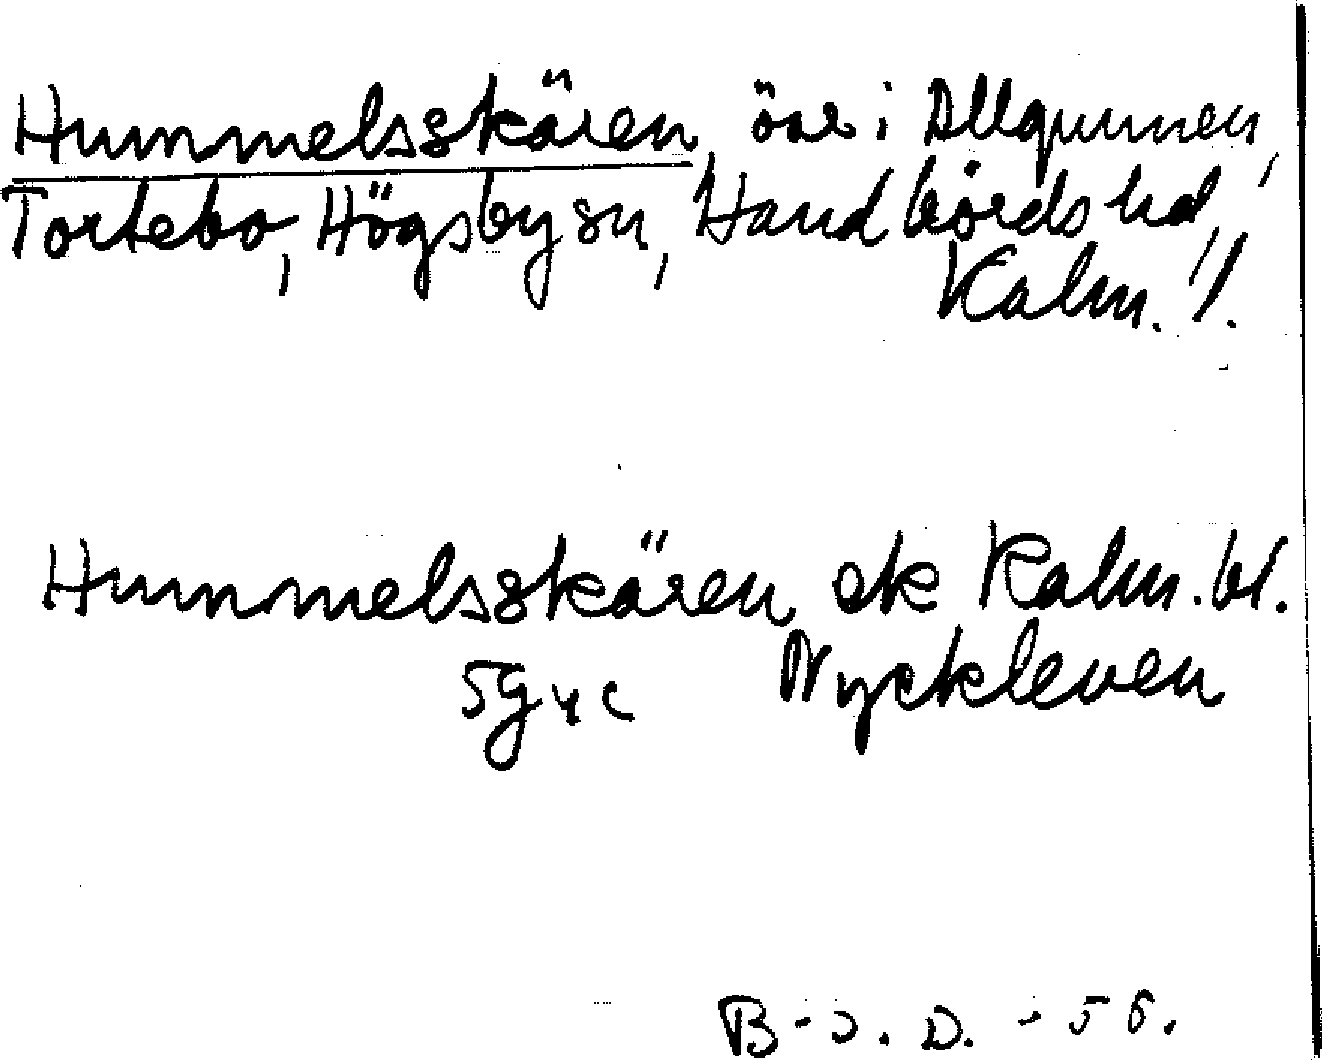 Hummelsskären, öar i Allgunnen,
Tortebo, Högsby sn, Handbörds hd,
Kalm. l.
Hummelsskären ek Kalm. bl.
5g4c Nyckleven
B-J. D. - 56.